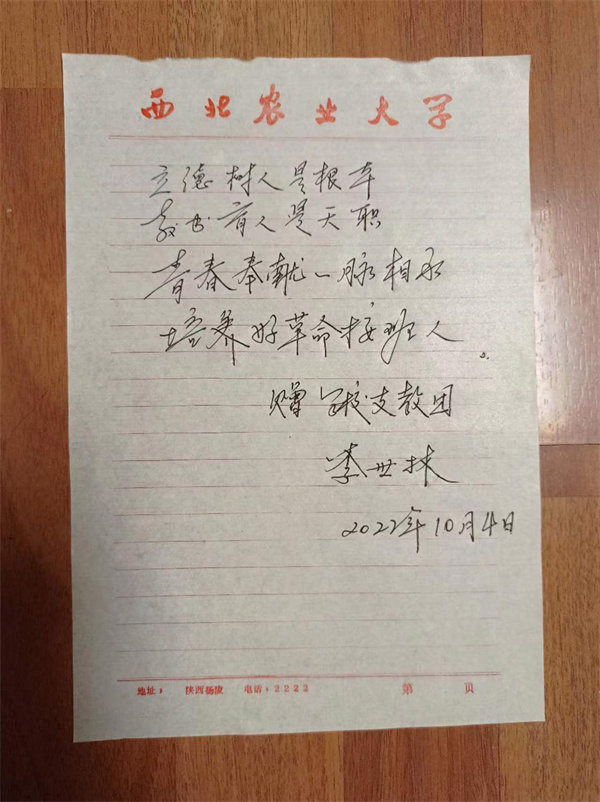 西北农业大学
立德树人是根本
教书育人是天职
青春奉献一脉相承
培养好革命接班人。
赠学校支教团
李世林
2022年10月4日
地址： 陕西杨陵 电话：2222 第 页